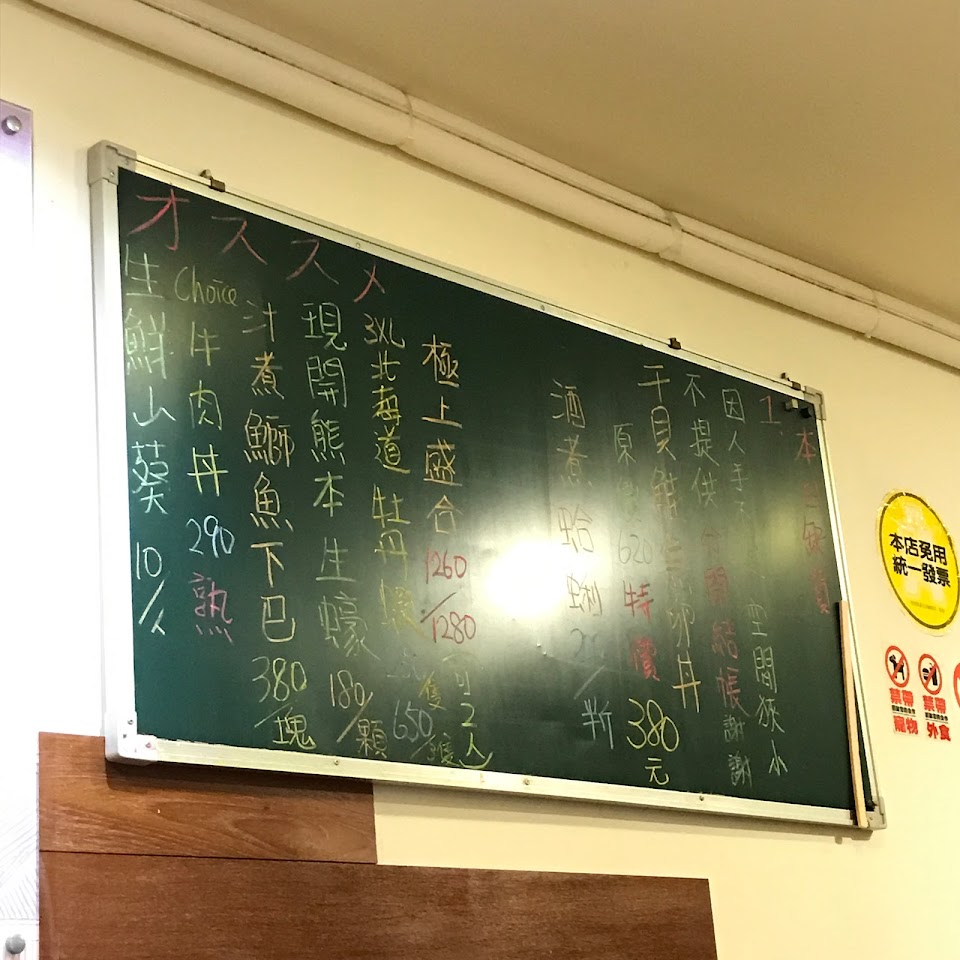 オススメ
生鮮山葵 10/人
Choice 牛肉丼 290 熟
汁煮鰤魚下巴 380/塊
現開熊本生蠔 180/顆
3XL 北海道牡丹蝦 650/隻
極上盛合 1260/1280 可2人
酒煮蛤蜊
原 620 特價 380元
干貝鮭 卵丼
不提供分開結帳 謝謝
1. 因人手 空間狹小
本
本店免用
統一發票
禁帶
寵物
禁帶
外食